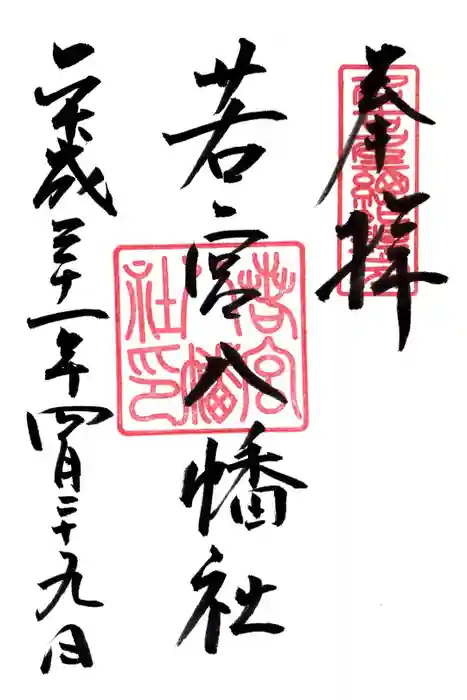 奉拝
名古屋總鎮守
若宮八幡社
若宮
八幡
社印
平成三十一年四月二十九日